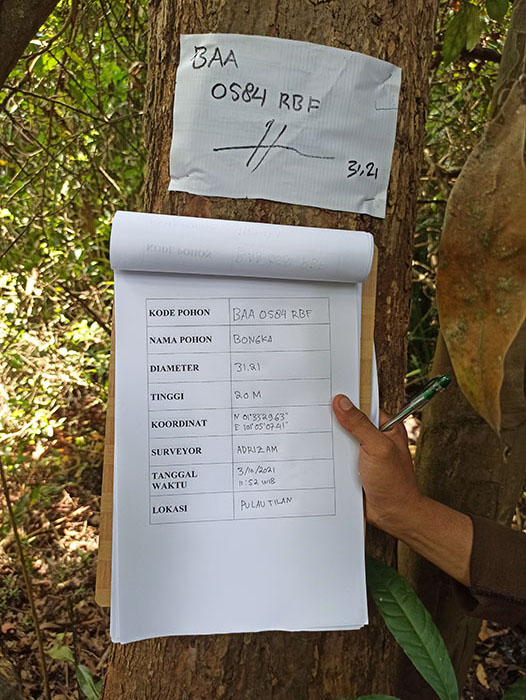 BAA
0584 RBF
31.21
KODE POHON BAA 0584 RBF
NAMA POHON BONGKA
DIAMETER 31.21
TINGGI 20 M
KOORDINAT N 01°33'29.63"
E 101°05'07.41"
SURVEYOR ADRIZAM
TANGGAL 3/10/2021
WAKTU 11:52 WIB
LOKASI PULAU TILAN